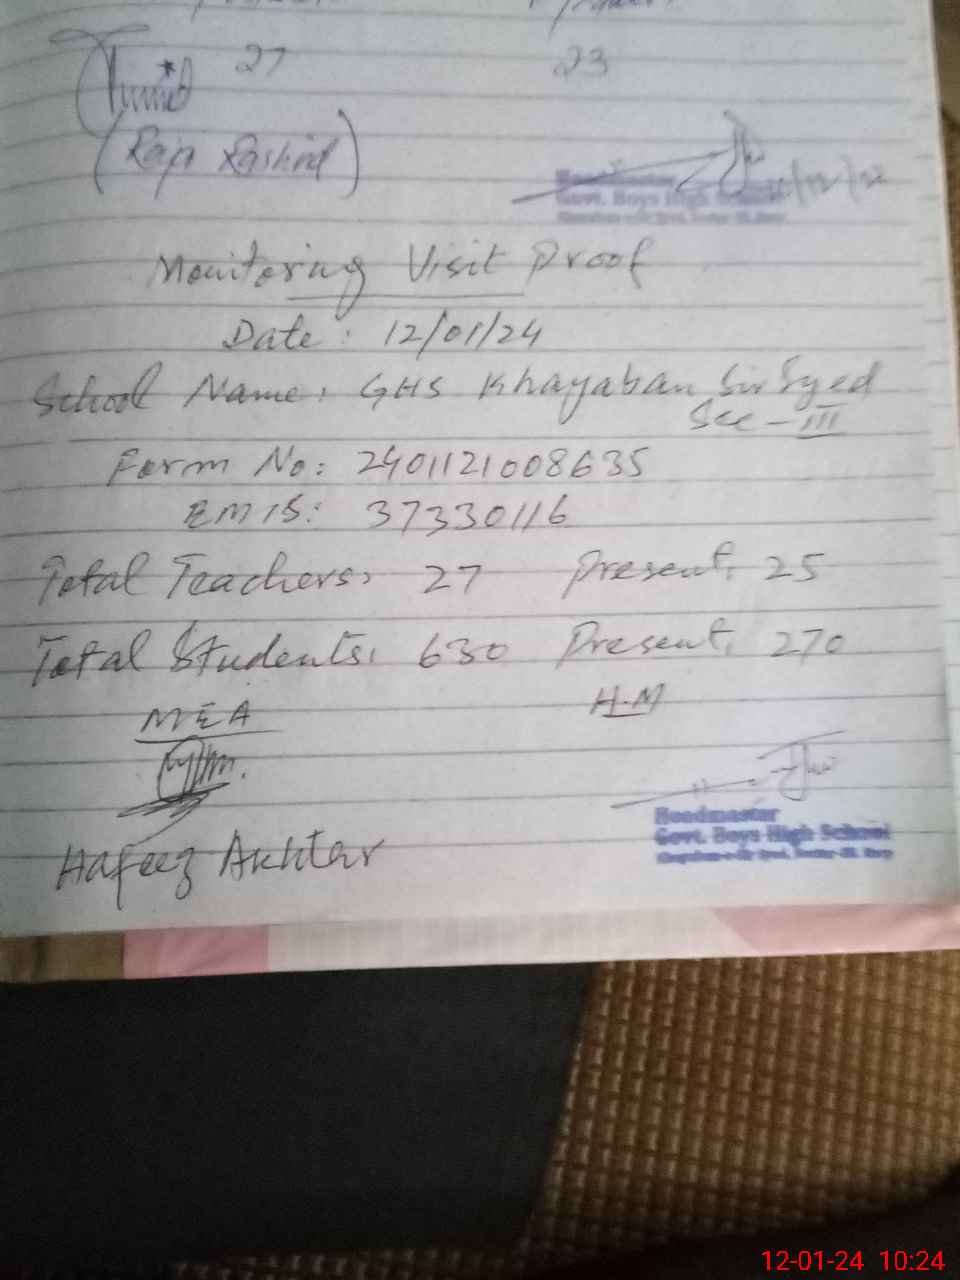 27 23
(Raja Rashid)
Headmaster
Govt. Boys High School
Monitoring Visit Proof
Date: 12/01/24
School Name: GHS Khayaban Sir Syed
Sec-III
Form No: 2401121008635
EMIS: 37330116
Total Teachers: 27 Present: 25
Total Students: 630 Present: 270
MEA H.M
Hafeez Akhtar
Headmaster
Govt. Boys High School
12-01-24 10:24